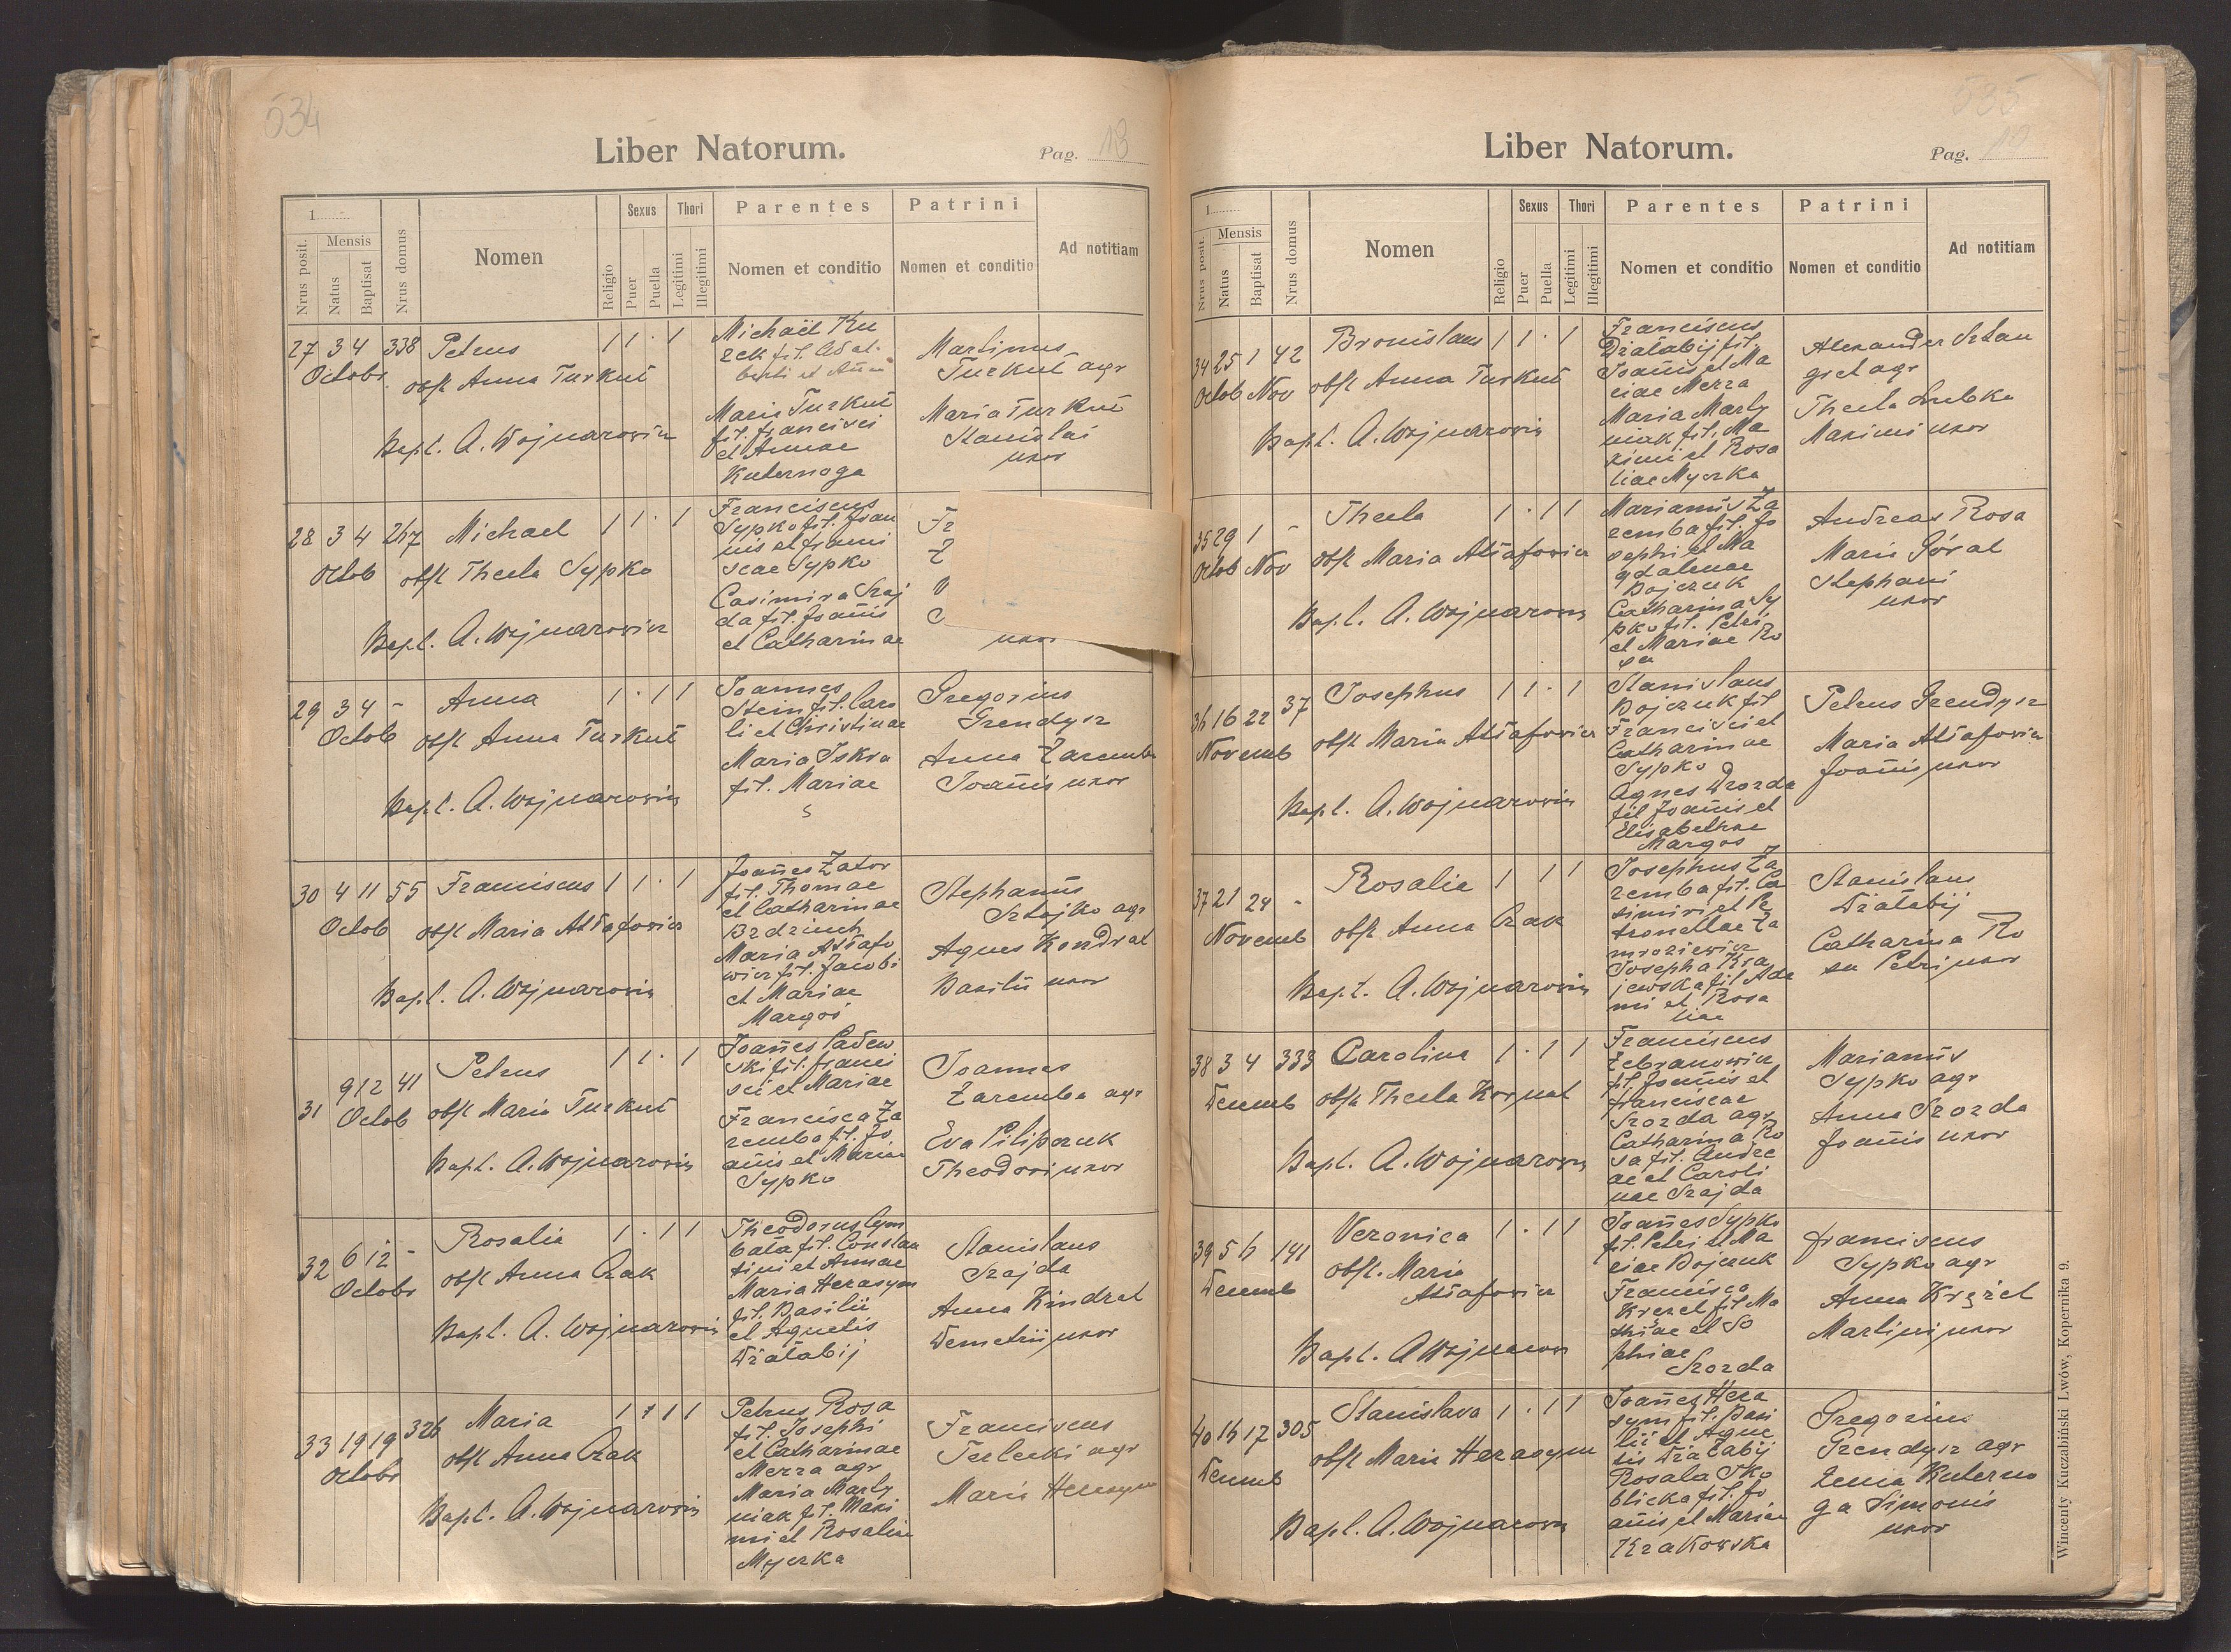 534
Liber Natorum.
Pag. 18
1
Nrus posit.
Mensis
Natus
Baptisat
Nrus domus
Nomen
Religio
Sexus
Puer
Puella
Thori
Legitimi
Illegitimi
Parentes
Nomen et conditio
Patrini
Nomen et conditio
Ad notitiam
27 3 4 338 Petrus 1 1 · 1
Octobr obst Anna Turkuł
Bapt. A. Wojnarowicz
Michaël Ku
rek fil. Adal-
berti et Annae
Maria Turkuł
fil. Francisci
et Annae
Kuternoga
Martinus
Turkuł agr
Maria Turkuł
Stanislai
uxor
28 3 4 247 Michael 1 1 · 1
Octob obst Thecla Sypko
Bapt. A. Wojnarowicz
Franciscus
Sypko fil. Joan
nis et Franci
scae Sypko
Casimira Szaj
da fil. Joañis
et Catharinae
Fr
uxor
29 3 4 - Anna 1 · 1 1
Octob obst Anna Turkuł
Bapt. A. Wojnarowicz
Joannes
Stein fil. Caro
li et Christinae
Maria Iskra
fil. Mariae
Gregorius
Grendysz
Anna Zaremba
Joañis uxor
30 4 11 55 Franciscus 1 1 · 1
Octob obst Maria Ałtafowicz
Bapt. A. Wojnarowicz
Joañes Zator
fil. Thomae
et Catharinae
Maria Ałtafo
wicz fil. Jacobi
et Mariae
Margos
Stephanus
Sztojko agr
Agnes Kondrat
Basilii uxor
31 9 12 41 Petrus 1 1 · 1
Octob obst Maria Turkuł
Bapt. A. Wojnarowicz
Joañes Sadow
ski fil. Franci
sci et Mariae
Francisca Za
remba fil. Jo
añis et Mariae
Sypko
Joannes
Zaremba agr
Eva Pilipczuk
Theodori uxor
32 6 12 - Rosalia 1 · 1 1
Octobr obst Anna Czak
Bapt. A. Wojnarowicz
Theodorus Cym
bała fil. Constan
tini et Annae
Maria Herasym
fil. Basilii
et Agnetis
Działabij
Stanislaus
Szajda
Anna Kindrat
Demetrii uxor
33 19 19 326 Maria 1 · 1 1
Octobr obst Anna Czak
Bapt. A. Wojnarowicz
Petrus Rosa
fil. Josephi
et Catharinae
Merza agr
Maria Marty
niak fil. Maxi
mi et Rosaliae
Mycrka
Franciscus
Terlecki agr
Maria Herasym
535
Liber Natorum.
Pag. 19
1
Nrus posit.
Mensis
Natus
Baptisat
Nrus domus
Nomen
Religio
Sexus
Puer
Puella
Thori
Legitimi
Illegitimi
Parentes
Nomen et conditio
Patrini
Nomen et conditio
Ad notitiam
34 25 1 42 Bronislaus 1 1 · 1
Octob Nov obst Anna Turkuł
Bapt. A. Wojnarowicz
Franciscus
Działabij fil.
Joañis et Ma
riae Merza
Maria Marty
niak fil. Ma
ximi et Rosa
liae Mycrka
Alexander Sztan
gret agr
Thecla
Maximi uxor
35 29 1 - Thecla 1 · 1 1
Octob Nov obst Maria Ałtafowicz
Bapt. A. Wojnarowicz
Marianus Za
remba fil. Jo
sephi et Ma
gdalenae
Bojczuk
Catharina Sy
pko fil. Petri
et Mariae Ro
sa
Andreas Rosa
Maria Góral
Stephani
uxor
36 16 22 37 Josephus 1 1 · 1
Novemb obst Maria Ałtafowicz
Bapt. A. Wojnarowicz
Stanislaus
Bojczuk fil
Francisci et
Catharinae
Sypko
Agnes Drozda
fil Joañis et
Elisabethae
Margos
Petrus Grendysz
Maria Ałtafowicz
Joañis uxor
37 21 24 - Rosalia 1 1 1
Novemb obst Anna Czak
Bapt. A. Wojnarowicz
Josephus Za
remba fil. Ca
simiri et Pe
tronellae Za
mroziewicz
Josepha Kra
jewska fil Ada
mi et Rosa
liae
Stanislaus
Działabij
Catharina Ro
sa Petri uxor
38 3 4 333 Carolina 1 · 1 1
Decemb obst Thecla Kornat
Bapt. A. Wojnarowicz
Franciscus
Zebranowicz
fil. Joañis et
Franciscae
Szozda agr
Catharina Ro
sa fil. Andre
ae et Caroli
nae Szajda
Marianus
Sypko agr
Anna Szozda
Joañis uxor
39 5 6 141 Veronica 1 · 1 1
Decemb obst. Maria
Ałtafowicz
Bapt. A Wojnarow
Joañes Sypko
fil. Petri et Ma
riae Bojczuk
Francisca
Krężel fil Ma
thiae et So
phiae
Szozda
Franciscus
Sypko agr
Anna Krężel
Martini uxor
40 16 17 305 Stanislava 1 · 1 1
Decemb obst Maria Herasym
Bapt. A. Wojnarowicz
Joañes Hera
sym fil. Basi
lii et Agne
tis Działabij
Rosala Sko
blicka fil. Jo
añis et Mariae
Krakowska
Gregorius
Grendysz agr
Xenia Kuterno
ga Simonis
uxor
Wincenty Kuczabiński Lwów, Kopernika 9.